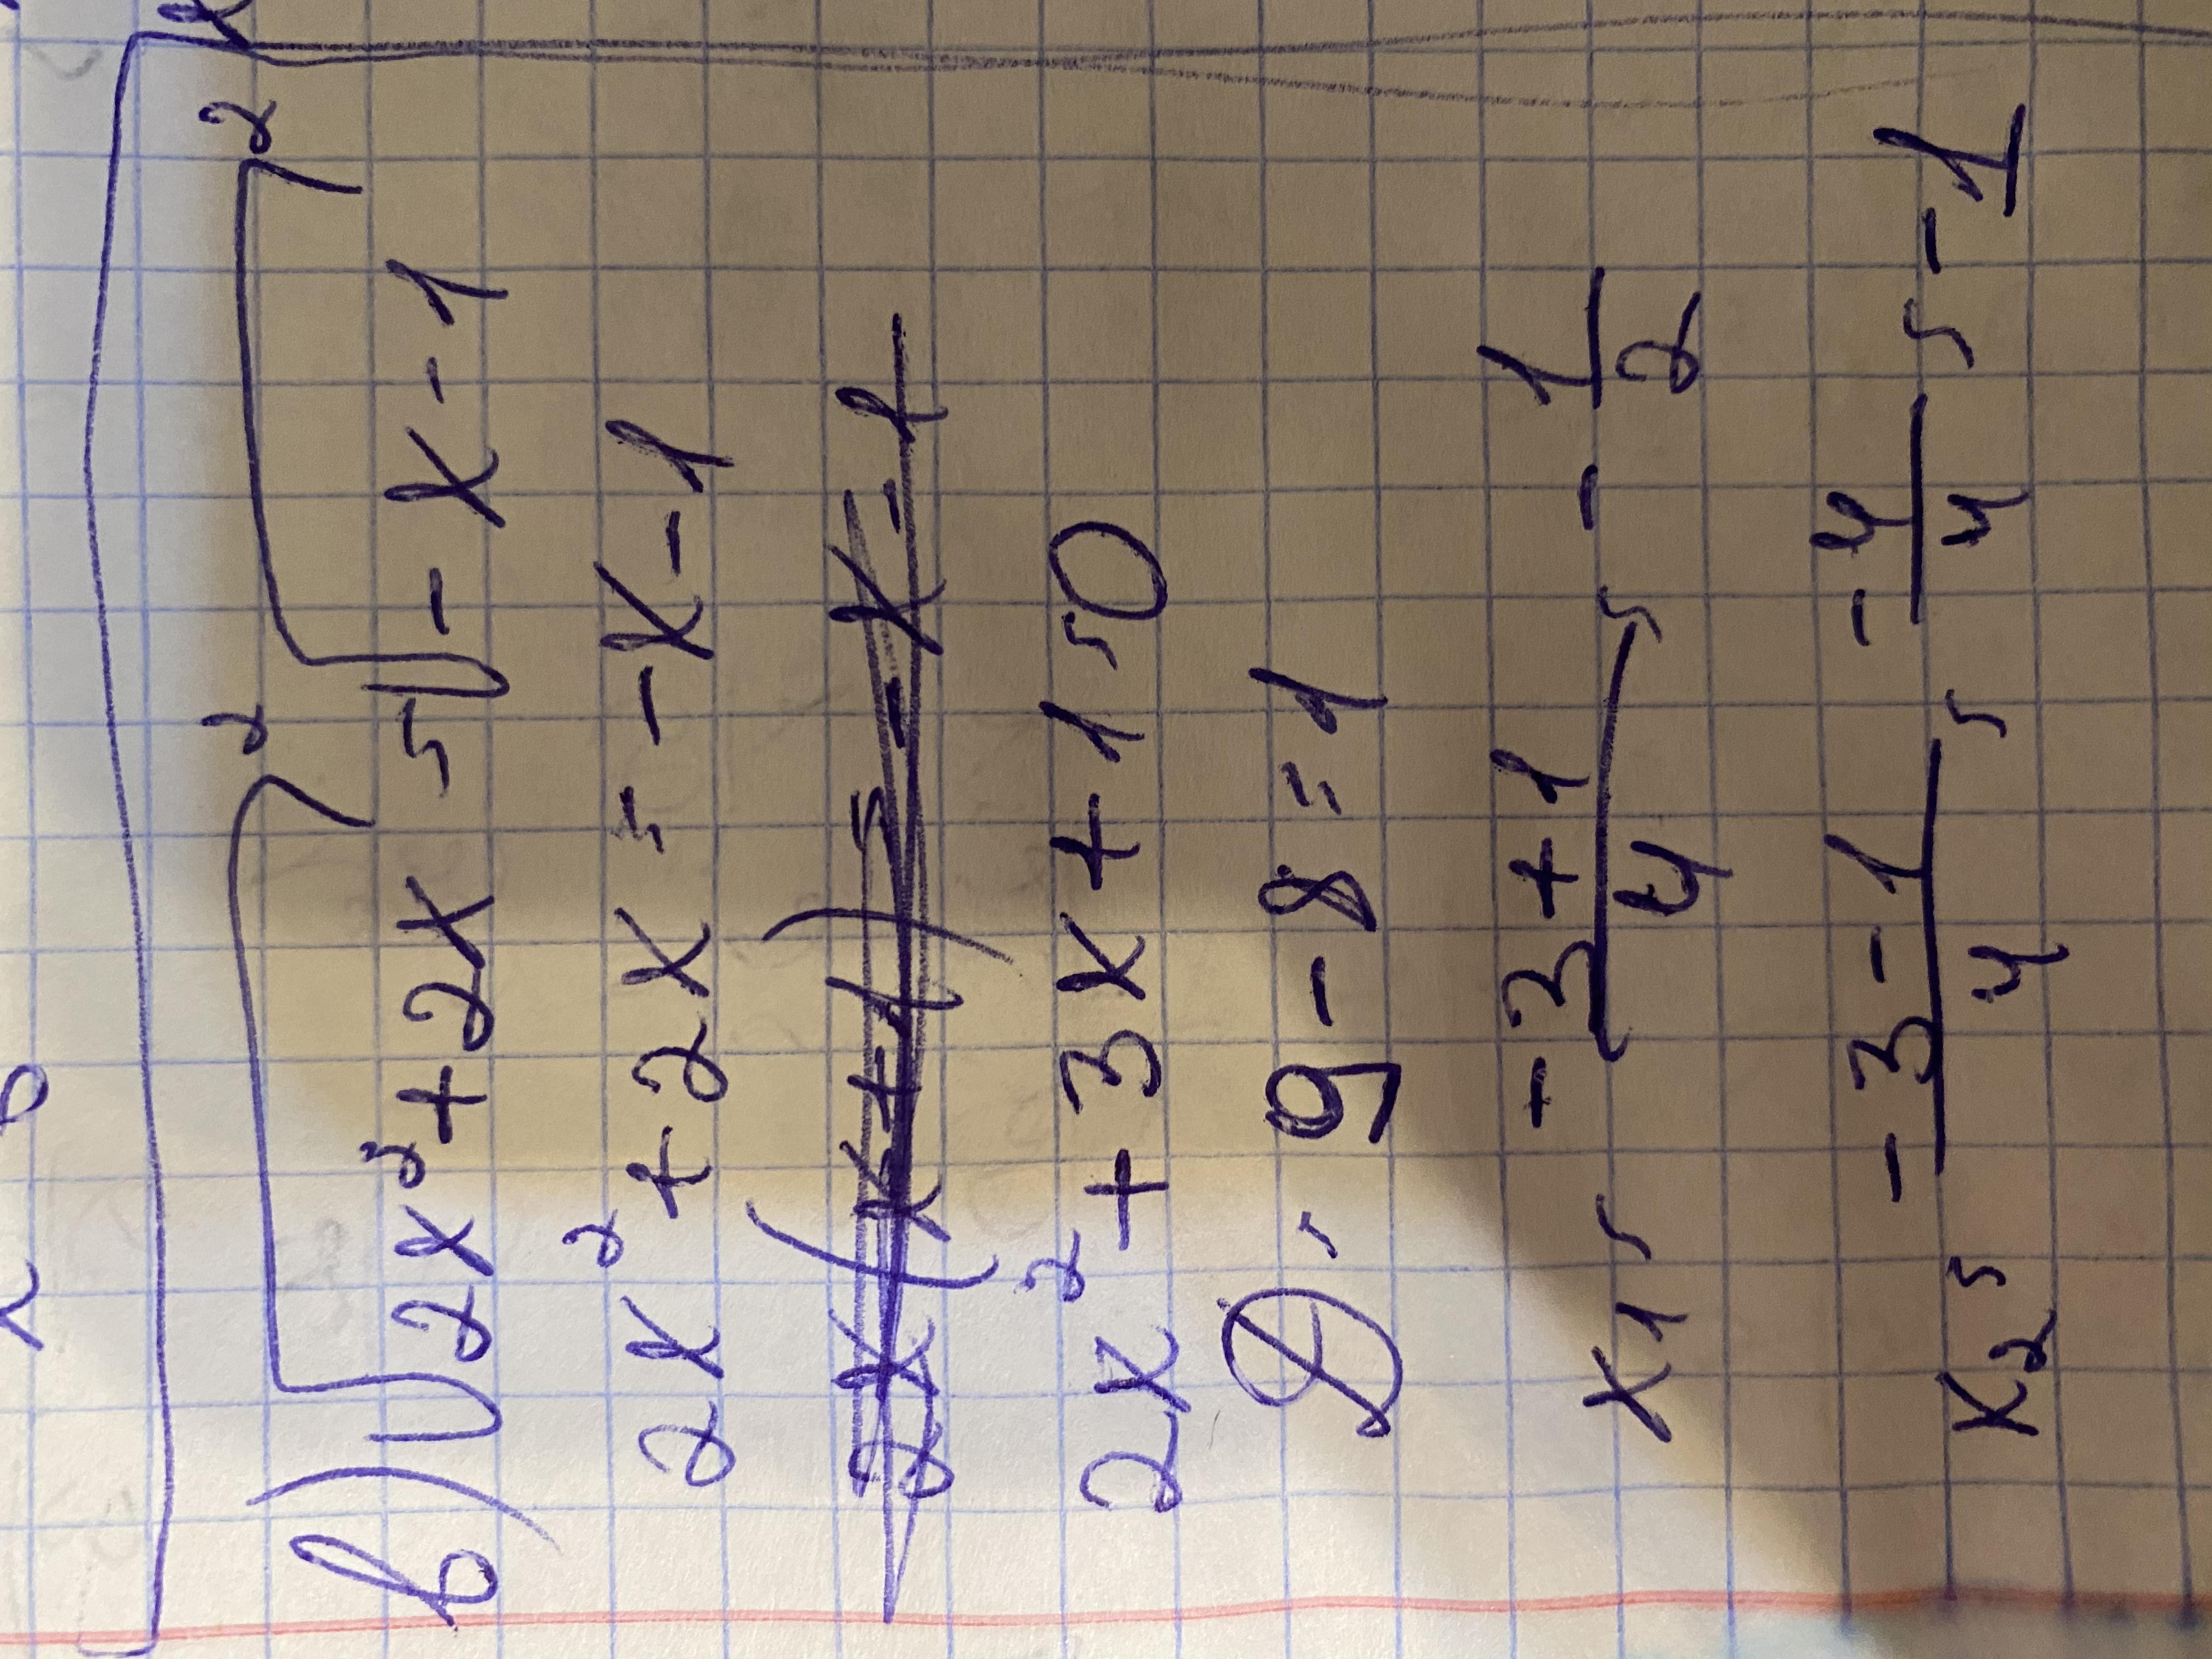 в) √(2x² + 2x)² = √(-x-1)²
2x² + 2x = -x-1
2x(x+1) = -x-1
2x² + 3x + 1 = 0
D = 9-8 = 1
x₁ = (-3+1)/4 = -1/2
x₂ = (-3-1)/4 = -4/4 = -1